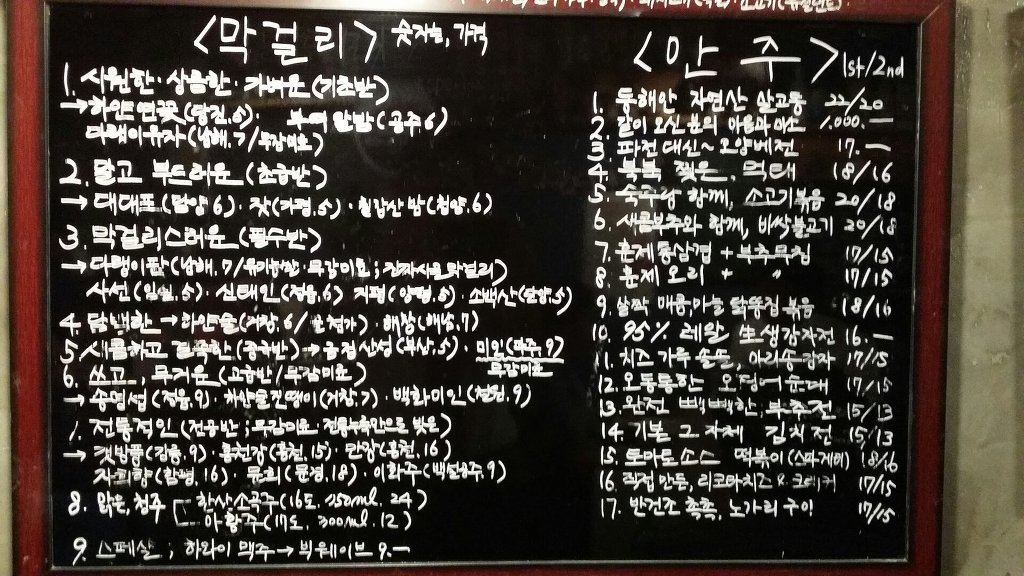 <막걸리> 숫자는, 가격
1. 시원한·상큼한·가벼운 (기초반)
→ 하얀연꽃 (당진.5) · 부여 알밤 (공주 6)
다랭이유자 (남해.7/무감미료)
2. 달고 부드러운 (초급반)
→ 대대포 (담양 6) · 잣 (가평.5) · 칠갑산 밤 (청양.6)
3. 막걸리스러운 (필수반)
→ 다랭이팜 (남해.7/유기농쌀·무감미료; 진짜사율막걸리)
사선 (임실.5) · 신태인 (정읍.6) 지평 (양평.5) · 소백산 (단양.5)
4. 담백한 → 하얀술 (거창.6/生첨가) · 해창 (해남.7)
5. 새콤하고 걸쭉한 (중급반) → 금정산성 (부산.5) · 미인 (파주.9)
무감미료
6. 쓰고, 무거운 (고급반/무감미료)
→ 송명섭 (정읍.9) · (거창.7) · 백화미인 (철원.9)
7. 전통적인 (전공반; 무감미료·전통누룩만으로 빚은)
→ 캣방풍 (강릉.9) · 홍천강 (홍천.15) · 만강 (홍천.16)
자희향 (함평.16) · 문희 (문경.18) · 이화주 (.9)
8. 맑은, 청주 [ 한산소곡주 (16도.250ml.24)
아황주 (17도.300ml.12)
9. 스페샬; 하와이 맥주 → 빅웨이브 9.—
<안 주> 1st/2nd
1. 동해안 자연산 살고동 22/20
2. 같이 오신분의 마음과 미소 1,000.—
3. 파전 대신~ 오양베전 17.—
4. 북북 찢은, 먹태 18/16
5. 숙주랑 함께, 소고기볶음 20/18
6. 새콤부추와 함께, 바싹불고기 20/18
7. 훈제통삼겹 + 부추무침 17/15
8. 훈제 오리 + 〃 17/15
9. 살짝 매콤, 마늘 닭똥집 볶음 18/16
10. 95% 레알 生생감자전 16.—
11. 치즈 가루 솔솔, 아리송 감자 17/15
12. 오동통한 오징어순대 17/15
13. 완전 빽빽한, 부추전 15/13
14. 기본 그 자체 김치전 15/13
15. 토마토소스 떡볶이 (스파게티) 18/16
16. 직접 만든, 리코타치즈 & 크래커 17/15
17. 반건조 촉촉, 노가리 구이 17/15